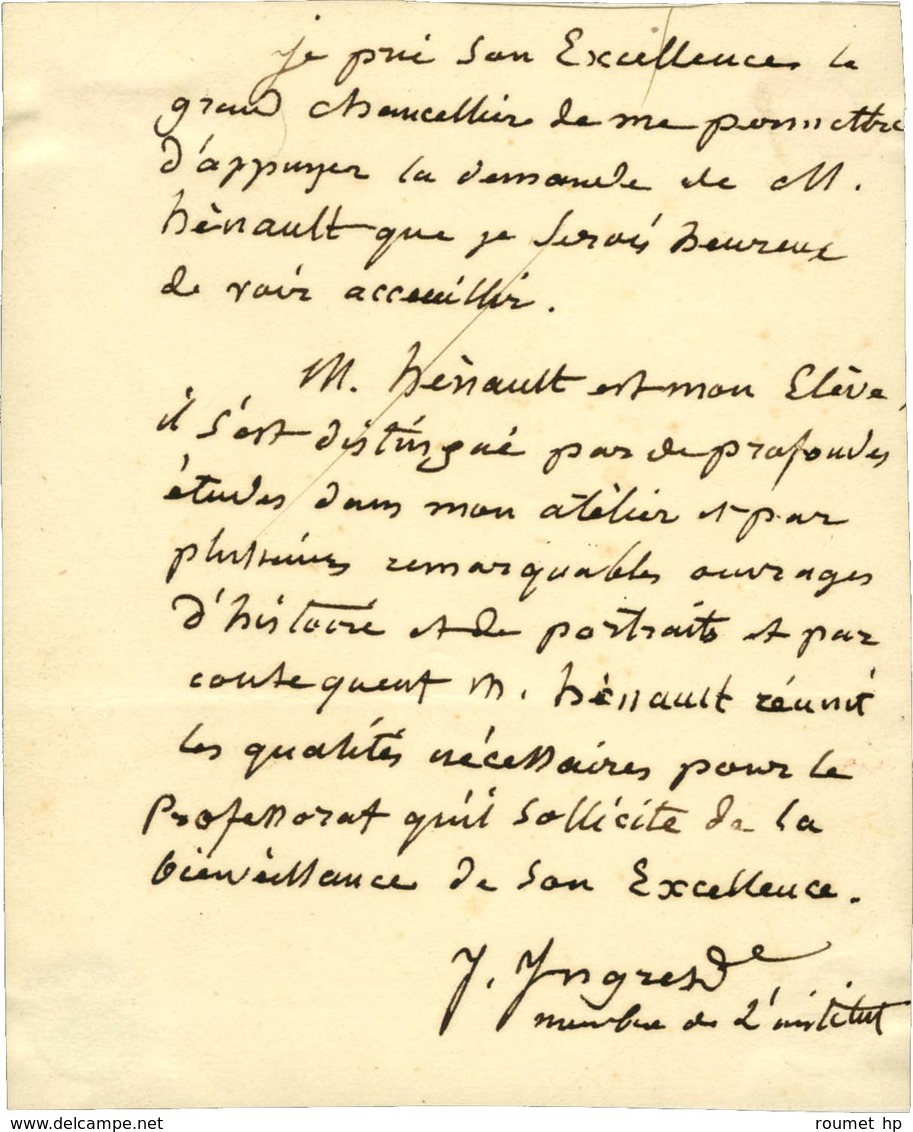 je prie Son Excellences le
grand Chancellier de me permettre
d'appuyer la demande de M.
hènault que je serois heureux
de voir acceuillir.
M. hènault est mon Elève,
il s'est distingué par de profondes
études dans mon atèlier et par
plusieurs remarquables ouvrages
d'histoire et de portraits et par
consequent M. hènault réunit
les qualités nécessaires pour le
Professorat qu'il sollicite de la
bienvèillance de Son Excellence.
J. Ingres
membre de L'institut
roumet hp